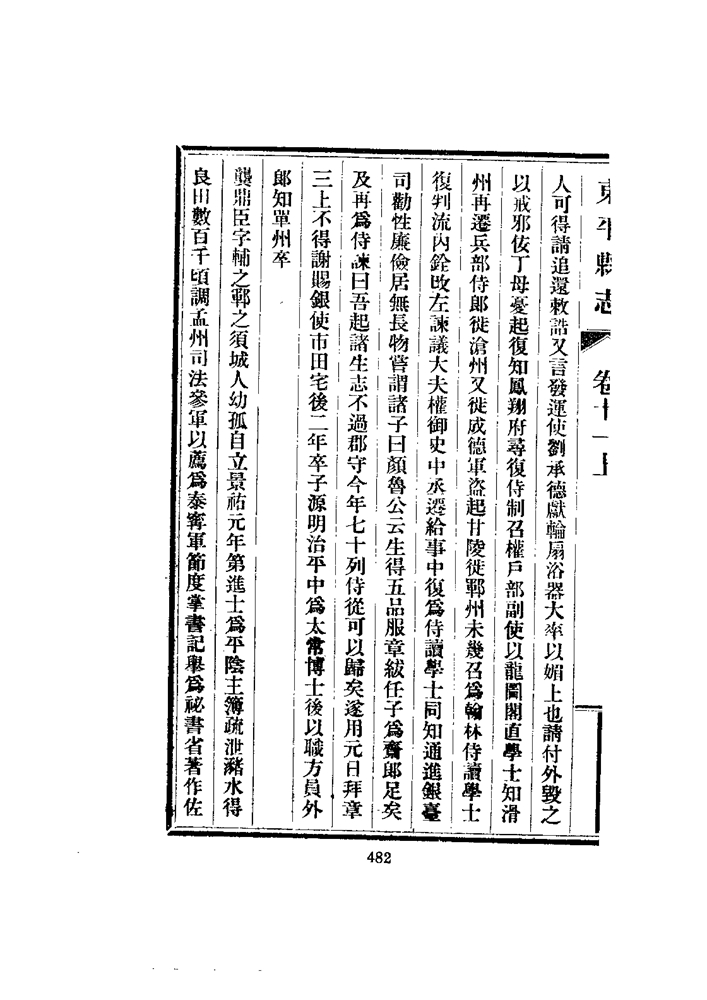 東平縣志
卷十一上
人可得請追還敕誥又言發運使劉承德獻輪扇浴器大率以媚上也請付外毀之
以戒邪佞丁母憂起復知鳳翔府尋復侍制召權戶部副使以龍圖閣直學士知滑
州再遷兵部侍郎徙滄州又徙成德軍盜起甘陵徙鄆州未幾召爲翰林侍讀學士
復判流內銓改左諫議大夫權御史中丞遷給事中復爲侍讀學士同知通進銀臺
司勸性廉儉居無長物嘗謂諸子曰顏魯公云生得五品服章紱任子爲齋郎足矣
及再爲侍諫曰吾起諸生志不過郡守今年七十列侍從可以歸矣遂用元日拜章
三上不得謝賜銀使市田宅後二年卒子源明治平中爲太常博士後以職方員外
郎知單州卒
龔鼎臣字輔之鄆之須城人幼孤自立景祐元年第進士爲平陰主簿疏泄瀦水得
良田數百千頃調孟州司法參軍以薦爲泰寗軍節度掌書記舉爲祕書省著作佐
482